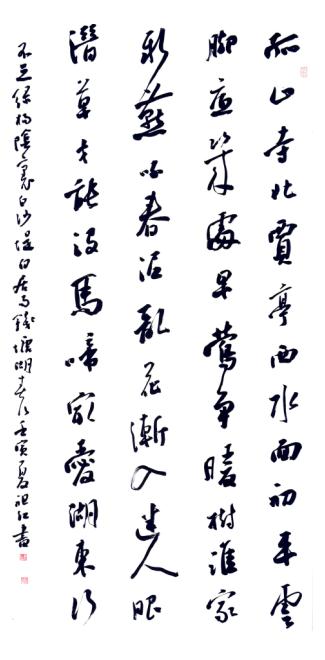 孤山寺北賈亭西水面初平雲
脚低幾處早鶯争暖樹誰家
新燕啄春泥亂花漸入迷人眼
潛草才能没馬啼最愛湖東行
不足绿楊陰裏白沙堤白居易錢塘湖春行壬寅夏祖红書